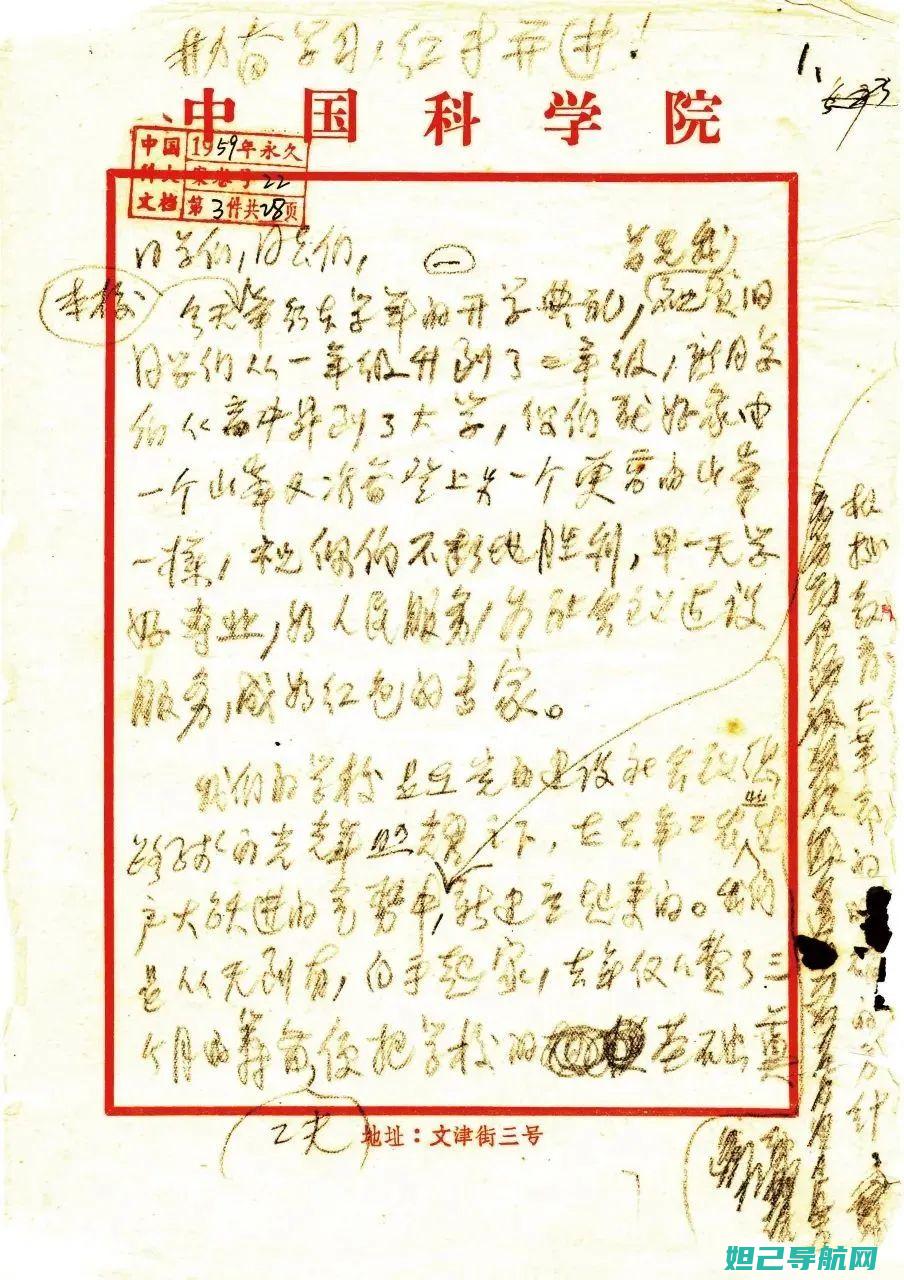 勤奋学习，红专并进！
1、
中国科学院
中国 1959年永久
科大 案卷号22
文档 第3件共28页
同学们，同志们， (一) 首先我
本校
今天举行本学年的开学典礼，祝贺旧
同学们从一年级升到了二年级，新同学
们从高中升到了大学，你们就好象由
一个山峯又准备登上另一个更高的山峯
一样，祝你们不断地胜利，早一天学
好专业，为人民服务，为社会主义建设
服务，成为红色的专家。
我们的学校是在党的建设社会主义
总路线的光辉照耀之下，在去年工农业生
产大跃进的气势中，新建立起来的。我们
是从无到有，白手起家，去年仅仅费了三
个月的筹备便把学校的基础奠
工夫
根据教育大革命的 的方针
地址：文津街三号
妲己导航网